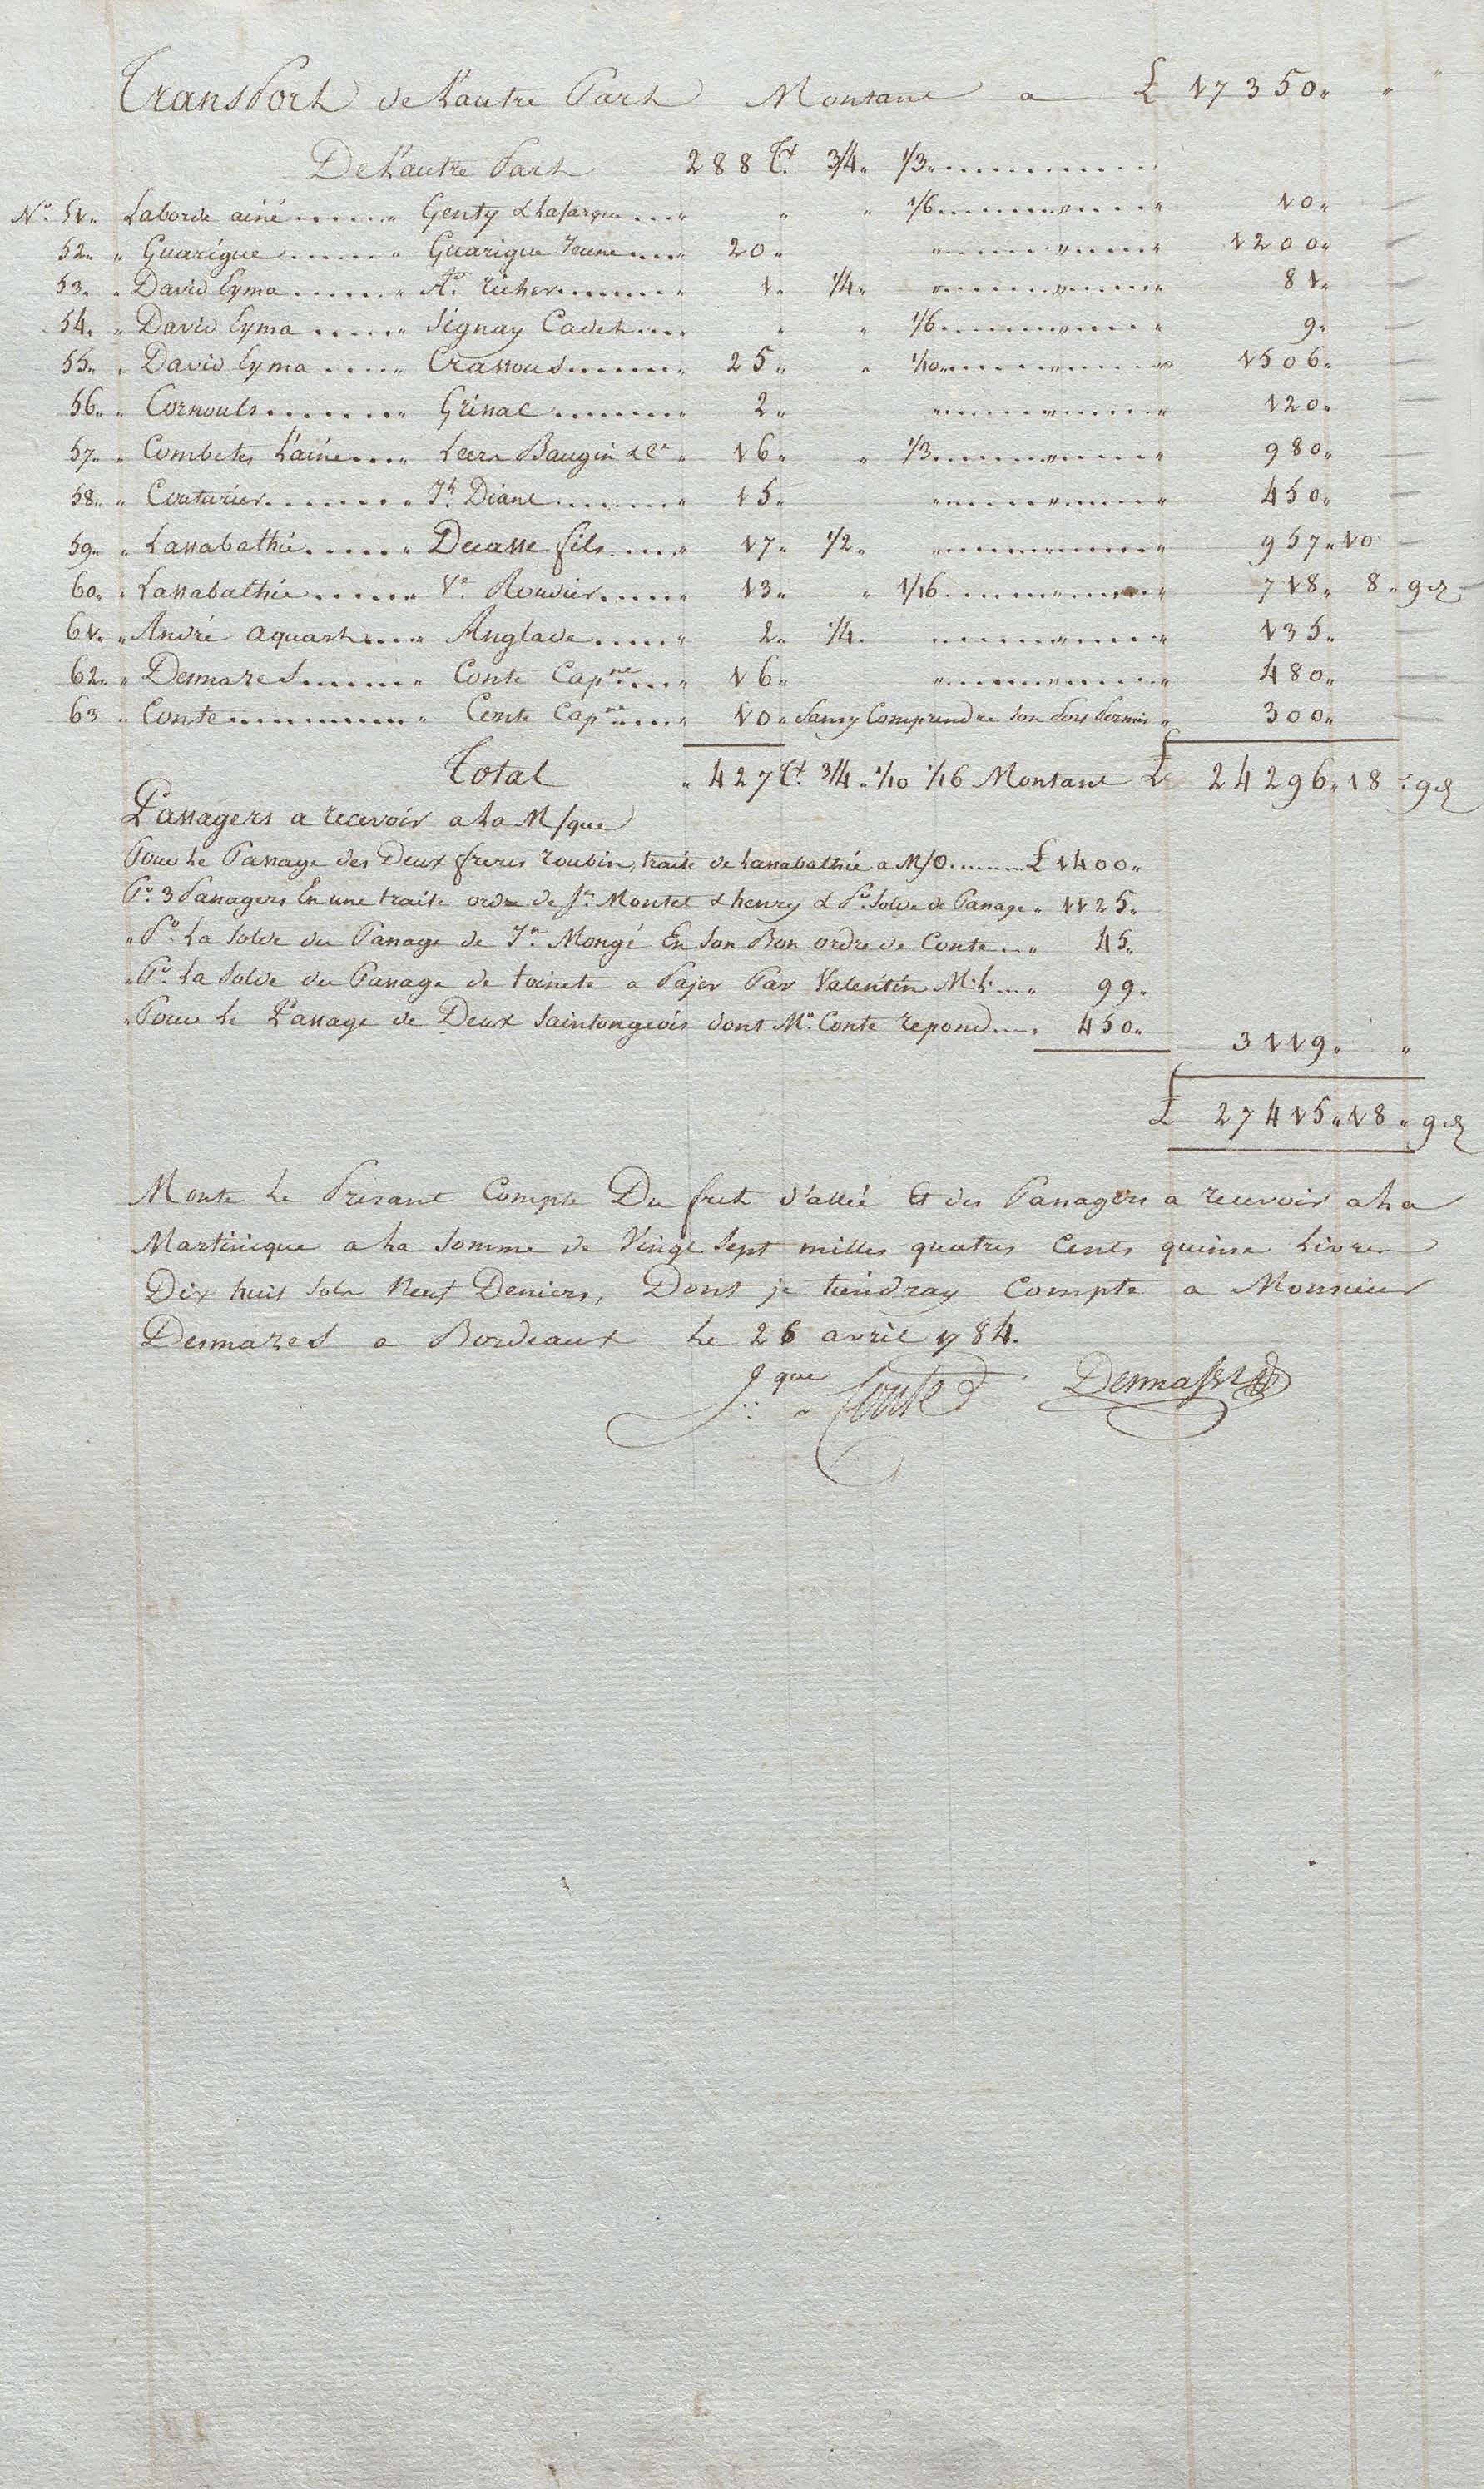 Transport de L'autre Part Montant a £ 17350 " "
De L'autre Part 288 Tx 3/4 " 1/3
No. 51 " Laborde ainé " Genty & Lafargue " " " 1/6 " 10 "
52 " " Guarigue " Guarigue Jeune " 20 " " 1200 "
53 " " David Eyma " A. richer " 1 " 1/4 " " 81 "
54 " " David Eyma " Signay Cadet " " 1/6 " 9 "
55 " " David Eyma " Crassous " 25 " " 1/10 " 1506 "
56 " " Cornouls " Grinac " 2 " " 120 "
57 " " Combetes L'ainé " Leers Baugin & Ce " 16 " " 1/3 " 980 "
58 " " Couturier " Jh. Diane " 15 " " 450 "
59 " " Lassabathie " Ducasse fils " 17 " 1/2 " " 957 " 10
60 " " Lassabathie " Ve. Rouvier " 13 " " 1/16 " 718 " 8 " 9 d
61 " " André aquart " Anglade " 2 " 1/4 " 135 "
62 " " Desmares " Conte Capne " 16 " " 480 "
63 " Conte " Conte Capne " 10 " Sans y Comprendre Son Pors Permis " 300 "
Total " 427 Tx 3/4 " 1/10 1/16 Montant £ 24296 " 18 " 9 d
Passagers a recevoir a La M/que
Pour Le Passage des Deux freres roubin, traite de Lassabathie a M/O £ 1400 "
Po. 3 Passagers En une traite ordre de Jn. Montet & henry & Po. Solde de Passage " 1125 "
" Po. La Solde du Passage de Jn. Mongé En Son Bon ordre de Conte " 45 "
" Po. La Solde du Passage de toinete a Pajer Par Valentin M.L. " 99 "
" Pour Le Passage de Deux Saintongeois dont Mr. Conte repond " 450 "
3119 " "
£ 27415 " 18 " 9 d
Monte Le Presant Compte Du fret d'allée Et des Passagers a recevoir a La
Martinique a La Somme de Vingt Sept milles quatres Cents quinse Livres
Dix huit Sols Neuf Deniers, Dont je tiendray Compte a Monsieur
Desmares a Bordeaux Le 26 avril 1784.
Jque Conte Desmares